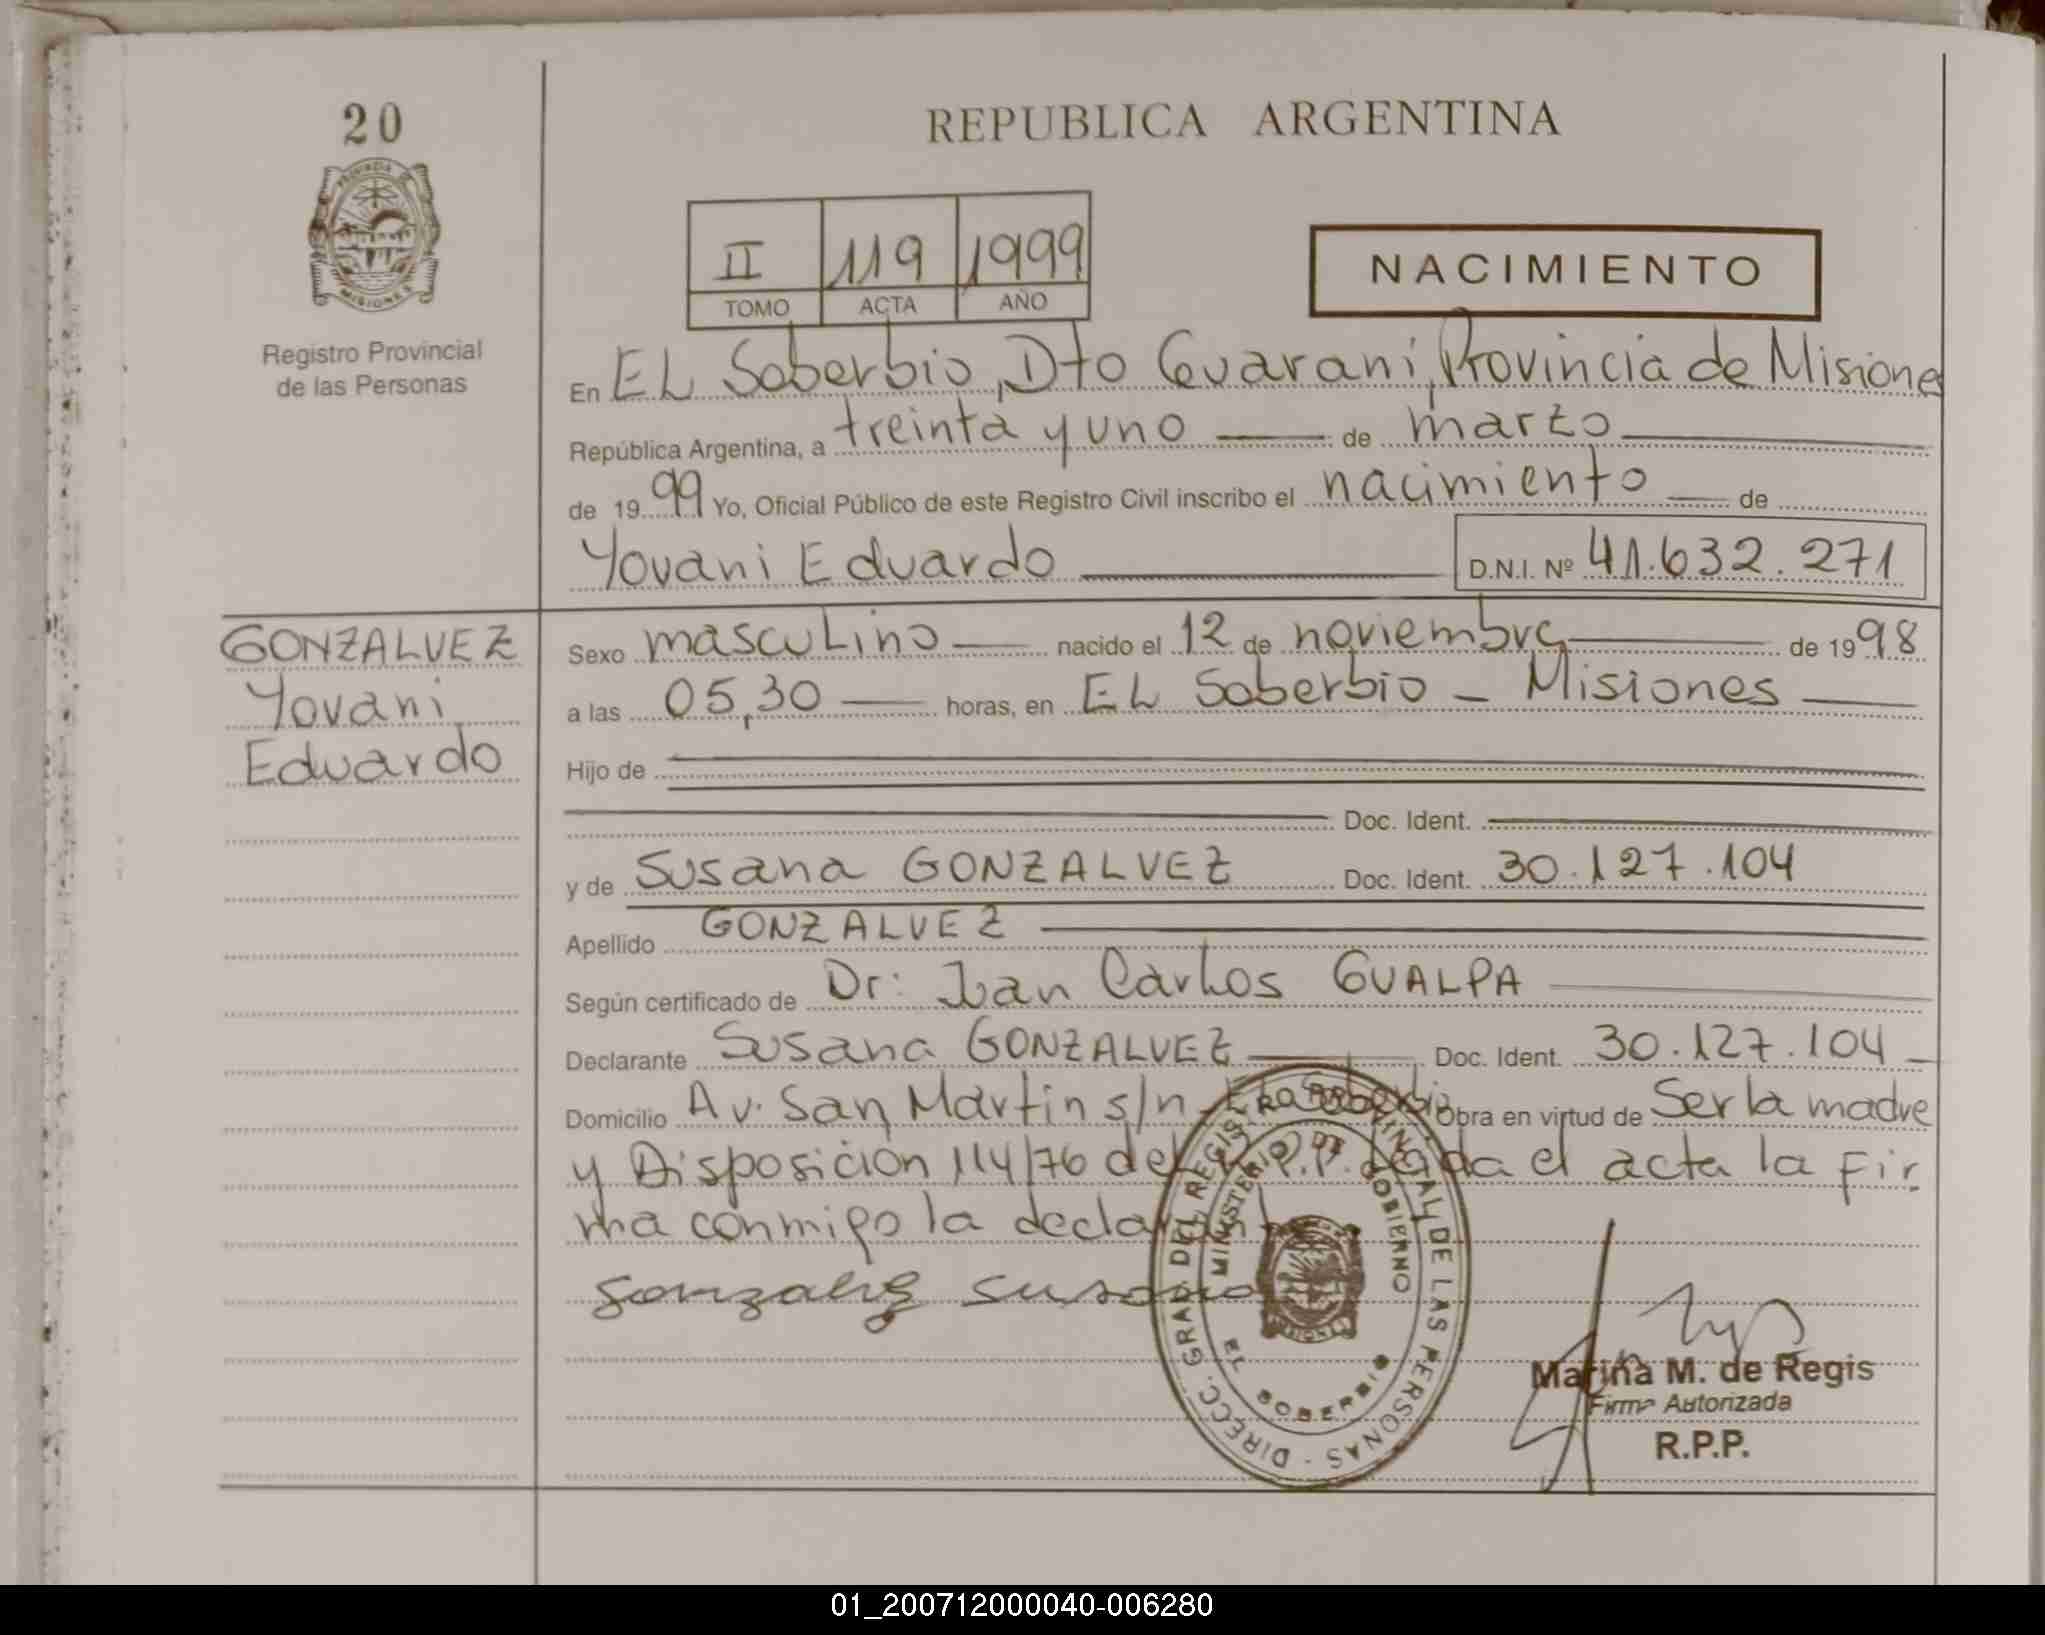 20
PROVINCIA DE
MISIONES
Registro Provincial
de las Personas
REPUBLICA ARGENTINA
II 119 1999
TOMO ACTA AÑO
NACIMIENTO
En EL Soberbio, Dto Guarani, Provincia de Misiones
República Argentina, a treinta y uno de marzo
de 1999 Yo, Oficial Público de este Registro Civil inscribo el nacimiento de
Yovani Eduardo D.N.I. Nº 41.632.271
GONZALVEZ
Yovani
Eduardo
Sexo masculino nacido el 12 de noviembre de 1998
a las 05,30 horas, en EL Soberbio - Misiones
Hijo de
Doc. Ident.
y de Susana GONZALVEZ Doc. Ident. 30.127.104
Apellido GONZALVEZ
Según certificado de Dr: Juan Carlos GUALPA
Declarante Susana GONZALVEZ Doc. Ident. 30.127.104
Domicilio Av. San Martin s/n El Soberbio Obra en virtud de Ser la madre
y Disposición 114/76 del R.P.P. Leida el acta la fir
ma conmigo la declarante
Gonzalvez Susana
DIRECC. GRAL DEL REGISTRO PROVINCIAL DE LAS PERSONAS
MINISTERIO DE GOBIERNO
EL SOBERBIO
MISIONES
Marina M. de Regis
Firma Autorizada
R.P.P.
01_200712000040-006280